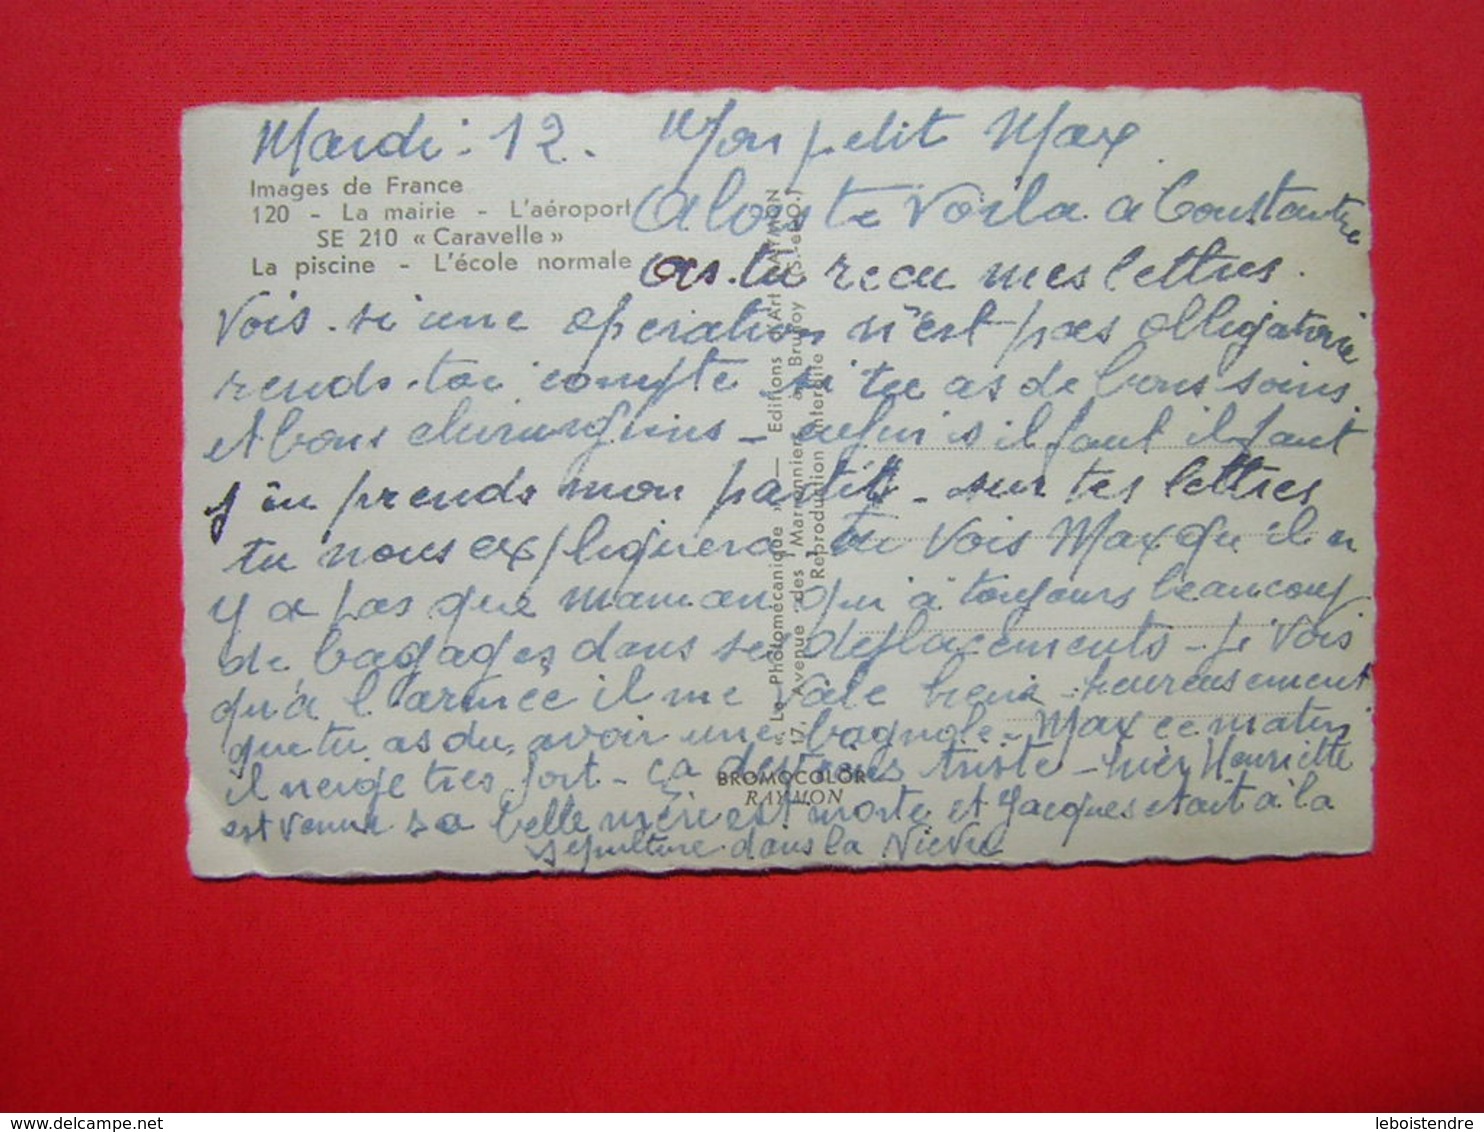 Mardi. 12. Mon petit Max
Images de France
120 - La mairie - L'aéroport
SE 210 « Caravelle »
La piscine - L'école normale
Alors te voila a Constantine
as.tu recu mes lettres.
Vois. si une operation n'est pas obligatoire
rends.toi compte si tu as de bons soins
et bons chirurgiens - enfin s'il faut il faut
j'en prends mon parti - sur tes lettres
tu nous expliquera, tu vois Max qu'il n
y a pas que maman qui à toujours beaucoup
de bagages dans ses deplacements - je vois
qu'a l'armée il me heureusement
que tu as du avoir une bagnole - Max ce matin
il neige tres fort - ça triste - hier Henriette
est venue sa belle mère est morte et Jacques etait à la
sepulture dans la Nievre
« La Photomécanique » — Editions d'Art RAYMON
17, Avenue des Marronniers à Brunoy (S.-et-O.)
Reproduction interdite
BROMOCOLOR
RAYMON
www.delcampe.net
leboistendre